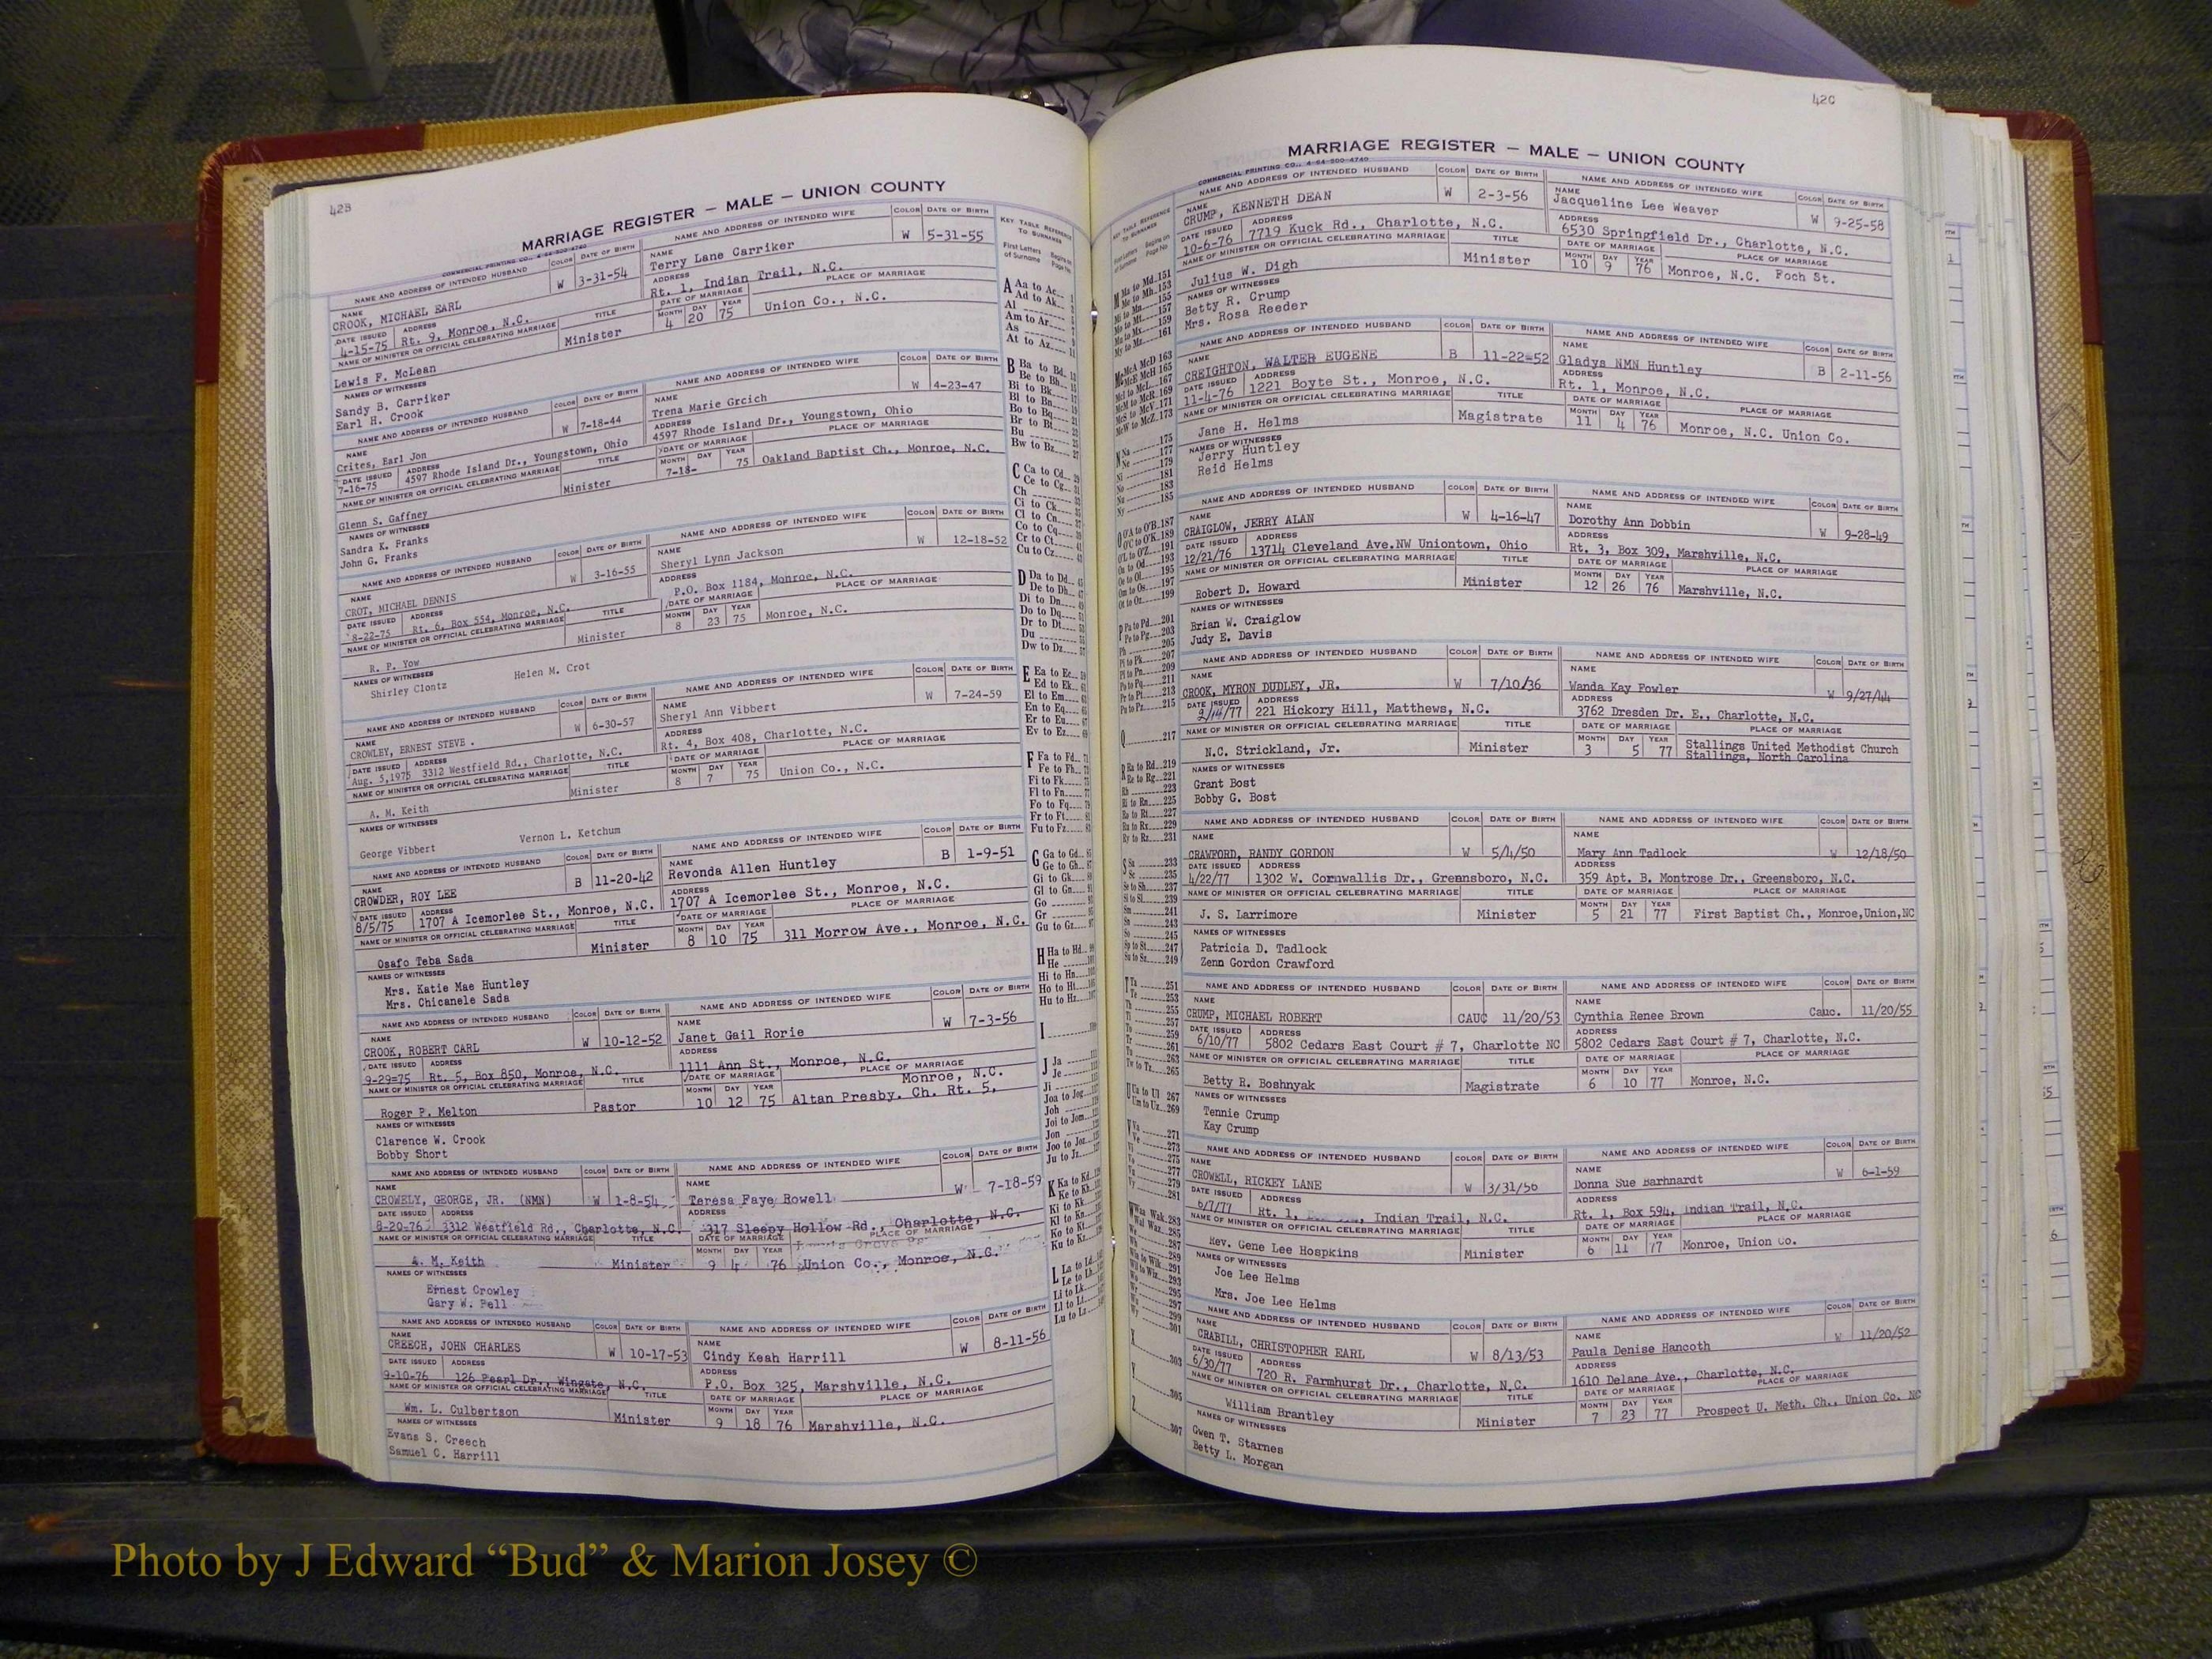 42B
MARRIAGE REGISTER — MALE — UNION COUNTY
COMMERCIAL PRINTING CO., 4-64-500-4740
NAME AND ADDRESS OF INTENDED HUSBAND COLOR DATE OF BIRTH NAME AND ADDRESS OF INTENDED WIFE COLOR DATE OF BIRTH
NAME CROOK, MICHAEL EARL W 3-31-54 NAME Terry Lane Carriker W 5-31-55
DATE ISSUED 4-15-75 ADDRESS Rt. 9, Monroe, N.C. ADDRESS Rt. 1, Indian Trail, N.C.
NAME OF MINISTER OR OFFICIAL CELEBRATING MARRIAGE TITLE DATE OF MARRIAGE PLACE OF MARRIAGE
Lewis F. McLean Minister MONTH 4 DAY 20 YEAR 75 Union Co., N.C.
NAMES OF WITNESSES
Sandy B. Carriker
Earl H. Crook
NAME AND ADDRESS OF INTENDED HUSBAND COLOR DATE OF BIRTH NAME AND ADDRESS OF INTENDED WIFE COLOR DATE OF BIRTH
NAME Crites, Earl Jon W 7-18-44 NAME Trena Marie Grcich W 4-23-47
DATE ISSUED 7-16-75 ADDRESS 4597 Rhode Island Dr., Youngstown, Ohio ADDRESS 4597 Rhode Island Dr., Youngstown, Ohio
NAME OF MINISTER OR OFFICIAL CELEBRATING MARRIAGE TITLE DATE OF MARRIAGE PLACE OF MARRIAGE
Glenn S. Gaffney Minister MONTH DAY YEAR 7-18- 75 Oakland Baptist Ch., Monroe, N.C.
NAMES OF WITNESSES
Sandra K. Franks
John G. Franks
NAME AND ADDRESS OF INTENDED HUSBAND COLOR DATE OF BIRTH NAME AND ADDRESS OF INTENDED WIFE COLOR DATE OF BIRTH
NAME CROT, MICHAEL DENNIS W 3-16-55 NAME Sheryl Lynn Jackson W 12-18-52
DATE ISSUED 8-22-75 ADDRESS Rt. 6, Box 554, Monroe, N.C. ADDRESS P.O. Box 1184, Monroe, N.C.
NAME OF MINISTER OR OFFICIAL CELEBRATING MARRIAGE TITLE DATE OF MARRIAGE PLACE OF MARRIAGE
R. P. Yow Minister MONTH 8 DAY 23 YEAR 75 Monroe, N.C.
NAMES OF WITNESSES
Shirley Clontz Helen M. Crot
NAME AND ADDRESS OF INTENDED HUSBAND COLOR DATE OF BIRTH NAME AND ADDRESS OF INTENDED WIFE COLOR DATE OF BIRTH
NAME CROWLEY, ERNEST STEVE . W 6-30-57 NAME Sheryl Ann Vibbert W 7-24-59
DATE ISSUED Aug. 5,1975 ADDRESS 3312 Westfield Rd., Charlotte, N.C. ADDRESS Rt. 4, Box 408, Charlotte, N.C.
NAME OF MINISTER OR OFFICIAL CELEBRATING MARRIAGE TITLE DATE OF MARRIAGE PLACE OF MARRIAGE
A. M. Keith Minister MONTH 8 DAY 7 YEAR 75 Union Co., N.C.
NAMES OF WITNESSES
George Vibbert Vernon L. Ketchum
NAME AND ADDRESS OF INTENDED HUSBAND COLOR DATE OF BIRTH NAME AND ADDRESS OF INTENDED WIFE COLOR DATE OF BIRTH
NAME CROWDER, ROY LEE B 11-20-42 NAME Revonda Allen Huntley B 1-9-51
DATE ISSUED 8/5/75 ADDRESS 1707 A Icemorlee St., Monroe, N.C. ADDRESS 1707 A Icemorlee St., Monroe, N.C.
NAME OF MINISTER OR OFFICIAL CELEBRATING MARRIAGE TITLE DATE OF MARRIAGE PLACE OF MARRIAGE
Osafo Teba Sada Minister MONTH 8 DAY 10 YEAR 75 311 Morrow Ave., Monroe, N.C.
NAMES OF WITNESSES
Mrs. Katie Mae Huntley
Mrs. Chicanele Sada
NAME AND ADDRESS OF INTENDED HUSBAND COLOR DATE OF BIRTH NAME AND ADDRESS OF INTENDED WIFE COLOR DATE OF BIRTH
NAME CROOK, ROBERT CARL W 10-12-52 NAME Janet Gail Rorie W 7-3-56
DATE ISSUED 9-29=75 ADDRESS Rt. 5, Box 850, Monroe, N.C. ADDRESS 1111 Ann St., Monroe, N.C.
NAME OF MINISTER OR OFFICIAL CELEBRATING MARRIAGE TITLE DATE OF MARRIAGE PLACE OF MARRIAGE
Monroe, N.C.
Roger P. Melton Pastor MONTH 10 DAY 12 YEAR 75 Altan Presby. Ch. Rt. 5,
NAMES OF WITNESSES
Clarence W. Crook
Bobby Short
NAME AND ADDRESS OF INTENDED HUSBAND COLOR DATE OF BIRTH NAME AND ADDRESS OF INTENDED WIFE COLOR DATE OF BIRTH
NAME CROWELY, GEORGE, JR. (NMN) W 1-8-54 NAME Teresa Faye Rowell W 7-18-59
DATE ISSUED 8-20-76 ADDRESS 3312 Westfield Rd., Charlotte, N.C. ADDRESS 317 Sleepy Hollow Rd., Charlotte, N.C.
NAME OF MINISTER OR OFFICIAL CELEBRATING MARRIAGE TITLE DATE OF MARRIAGE PLACE OF MARRIAGE
A. M. Keith Minister MONTH 9 DAY 4 YEAR 76 Union Co., Monroe, N.C.
NAMES OF WITNESSES
Ernest Crowley
Gary W. Pell
NAME AND ADDRESS OF INTENDED HUSBAND COLOR DATE OF BIRTH NAME AND ADDRESS OF INTENDED WIFE COLOR DATE OF BIRTH
NAME CREECH, JOHN CHARLES W 10-17-53 NAME Cindy Keah Harrill W 8-11-56
DATE ISSUED 9-10-76 ADDRESS 126 Pearl Dr., Wingate, N.C. ADDRESS P.O. Box 325, Marshville, N.C.
NAME OF MINISTER OR OFFICIAL CELEBRATING MARRIAGE TITLE DATE OF MARRIAGE PLACE OF MARRIAGE
Wm. L. Culbertson Minister MONTH 9 DAY 18 YEAR 76 Marshville, N.C.
NAMES OF WITNESSES
Evans S. Creech
Samuel C. Harrill
KEY TABLE REFERENCE
TO SURNAMES
First Letters of Surname Begins on Page No.
A Aa to Ac
Ad to Ak
Al
Am to Ar
As
At to Az
B Ba to Bd
Be to Bh
Bi to Bk
Bl to Bn
Bo to Bq
Br to Bt
Bu
Bw to Bz
C Ca to Cd
Ce to Cg
Ch
Ci to Ck
Cl to Cn
Co to Cq
Cr to Ct
Cu to Cz
D Da to Dd
De to Dh
Di to Dn
Do to Dq
Dr to Dt
Du
Dw to Dz
E Ea to Ec
Ed to Ek
El to Em
En to Eq
Er to Eu
Ev to Ez
F Fa to Fd
Fe to Fh
Fi to Fk
Fl to Fn
Fo to Fq
Fr to Ft
Fu to Fz
G Ga to Gd
Ge to Gh
Gi to Gk
Gl to Gn
Go
Gr
Gu to Gz
H Ha to Hd
He
Hi to Hn
Ho to Ht
Hu to Hz
I
J Ja
Je
Ji
Joa to Jog
Joh
Joi to Jom
Jon
Joo to Joz
Ju to Jz
K Ka to Kd
Ke to Kh
Ki to Kk
Kl to Kn
Ko to Kt
Ku to Kz
L La to Ld
Le to Lh
Li to Lk
Ll to Lt
Lu to Lz
42C
MARRIAGE REGISTER — MALE — UNION COUNTY
COMMERCIAL PRINTING CO., 4-64-500-4740
NAME AND ADDRESS OF INTENDED HUSBAND COLOR DATE OF BIRTH NAME AND ADDRESS OF INTENDED WIFE COLOR DATE OF BIRTH
NAME CRUMP, KENNETH DEAN W 2-3-56 NAME Jacqueline Lee Weaver W 9-25-58
DATE ISSUED 10-6-76 ADDRESS 7719 Kuck Rd., Charlotte, N.C. ADDRESS 6530 Springfield Dr., Charlotte, N.C.
NAME OF MINISTER OR OFFICIAL CELEBRATING MARRIAGE TITLE DATE OF MARRIAGE PLACE OF MARRIAGE
Julius W. Digh Minister MONTH 10 DAY 9 YEAR 76 Monroe, N.C. Foch St.
NAMES OF WITNESSES
Betty R. Crump
Mrs. Rosa Reeder
NAME AND ADDRESS OF INTENDED HUSBAND COLOR DATE OF BIRTH NAME AND ADDRESS OF INTENDED WIFE COLOR DATE OF BIRTH
NAME CREIGHTON, WALTER EUGENE B 11-22=52 NAME Gladys NMN Huntley B 2-11-56
DATE ISSUED 11-4-76 ADDRESS 1221 Boyte St., Monroe, N.C. ADDRESS Rt. 1, Monroe, N.C.
NAME OF MINISTER OR OFFICIAL CELEBRATING MARRIAGE TITLE DATE OF MARRIAGE PLACE OF MARRIAGE
Jane H. Helms Magistrate MONTH 11 DAY 4 YEAR 76 Monroe, N.C. Union Co.
NAMES OF WITNESSES
Jerry Huntley
Reid Helms
NAME AND ADDRESS OF INTENDED HUSBAND COLOR DATE OF BIRTH NAME AND ADDRESS OF INTENDED WIFE COLOR DATE OF BIRTH
NAME CRAIGLOW, JERRY ALAN W 4-16-47 NAME Dorothy Ann Dobbin W 9-28-49
DATE ISSUED 12/21/76 ADDRESS 13714 Cleveland Ave.NW Uniontown, Ohio ADDRESS Rt. 3, Box 309, Marshville, N.C.
NAME OF MINISTER OR OFFICIAL CELEBRATING MARRIAGE TITLE DATE OF MARRIAGE PLACE OF MARRIAGE
Robert D. Howard Minister MONTH 12 DAY 26 YEAR 76 Marshville, N.C.
NAMES OF WITNESSES
Brian W. Craiglow
Judy E. Davis
NAME AND ADDRESS OF INTENDED HUSBAND COLOR DATE OF BIRTH NAME AND ADDRESS OF INTENDED WIFE COLOR DATE OF BIRTH
NAME CROOK, MYRON DUDLEY, JR. W 7/10/36 NAME Wanda Kay Fowler W 9/27/44
DATE ISSUED 2/14/77 ADDRESS 221 Hickory Hill, Matthews, N.C. ADDRESS 3762 Dresden Dr. E., Charlotte, N.C.
NAME OF MINISTER OR OFFICIAL CELEBRATING MARRIAGE TITLE DATE OF MARRIAGE PLACE OF MARRIAGE
N.C. Strickland, Jr. Minister MONTH 3 DAY 5 YEAR 77 Stallings United Methodist Church
Stallings, North Carolina
NAMES OF WITNESSES
Grant Bost
Bobby G. Bost
NAME AND ADDRESS OF INTENDED HUSBAND COLOR DATE OF BIRTH NAME AND ADDRESS OF INTENDED WIFE COLOR DATE OF BIRTH
NAME CRAWFORD, RANDY GORDON W 5/4/50 NAME Mary Ann Tadlock W 12/18/50
DATE ISSUED 4/22/77 ADDRESS 1302 W. Cornwallis Dr., Greensboro, N.C. ADDRESS 359 Apt. B, Montrose Dr., Greensboro, N.C.
NAME OF MINISTER OR OFFICIAL CELEBRATING MARRIAGE TITLE DATE OF MARRIAGE PLACE OF MARRIAGE
J. S. Larrimore Minister MONTH 5 DAY 21 YEAR 77 First Baptist Ch., Monroe,Union,NC
NAMES OF WITNESSES
Patricia D. Tadlock
Zenn Gordon Crawford
NAME AND ADDRESS OF INTENDED HUSBAND COLOR DATE OF BIRTH NAME AND ADDRESS OF INTENDED WIFE COLOR DATE OF BIRTH
NAME CRUMP, MICHAEL ROBERT CAUC 11/20/53 NAME Cynthia Renee Brown Cauc. 11/20/55
DATE ISSUED 6/10/77 ADDRESS 5802 Cedars East Court # 7, Charlotte NC ADDRESS 5802 Cedars East Court # 7, Charlotte, N.C.
NAME OF MINISTER OR OFFICIAL CELEBRATING MARRIAGE TITLE DATE OF MARRIAGE PLACE OF MARRIAGE
Betty R. Boshnyak Magistrate MONTH 6 DAY 10 YEAR 77 Monroe, N.C.
NAMES OF WITNESSES
Tennie Crump
Kay Crump
NAME AND ADDRESS OF INTENDED HUSBAND COLOR DATE OF BIRTH NAME AND ADDRESS OF INTENDED WIFE COLOR DATE OF BIRTH
NAME CROWELL, RICKEY LANE W 3/31/56 NAME Donna Sue Barhnardt W 6-1-59
DATE ISSUED 6/7/77 ADDRESS Rt. 1, Indian Trail, N.C. ADDRESS Rt. 1, Box 594, Indian Trail, N.C.
NAME OF MINISTER OR OFFICIAL CELEBRATING MARRIAGE TITLE DATE OF MARRIAGE PLACE OF MARRIAGE
Rev. Gene Lee Hospkins Minister MONTH 6 DAY 11 YEAR 77 Monroe, Union Co.
NAMES OF WITNESSES
Joe Lee Helms
Mrs. Joe Lee Helms
NAME AND ADDRESS OF INTENDED HUSBAND COLOR DATE OF BIRTH NAME AND ADDRESS OF INTENDED WIFE COLOR DATE OF BIRTH
NAME CRABILL, CHRISTOPHER EARL W 8/13/53 NAME Paula Denise Hancoth W 11/20/52
DATE ISSUED 6/30/77 ADDRESS 720 R. Farmhurst Dr., Charlotte, N.C. ADDRESS 1610 Delane Ave., Charlotte, N.C.
NAME OF MINISTER OR OFFICIAL CELEBRATING MARRIAGE TITLE DATE OF MARRIAGE PLACE OF MARRIAGE
William Brantley Minister MONTH 7 DAY 23 YEAR 77 Prospect U. Meth. Ch., Union Co. NC
NAMES OF WITNESSES
Gwen T. Starnes
Betty L. Morgan
Photo by J Edward “Bud” & Marion Josey ©